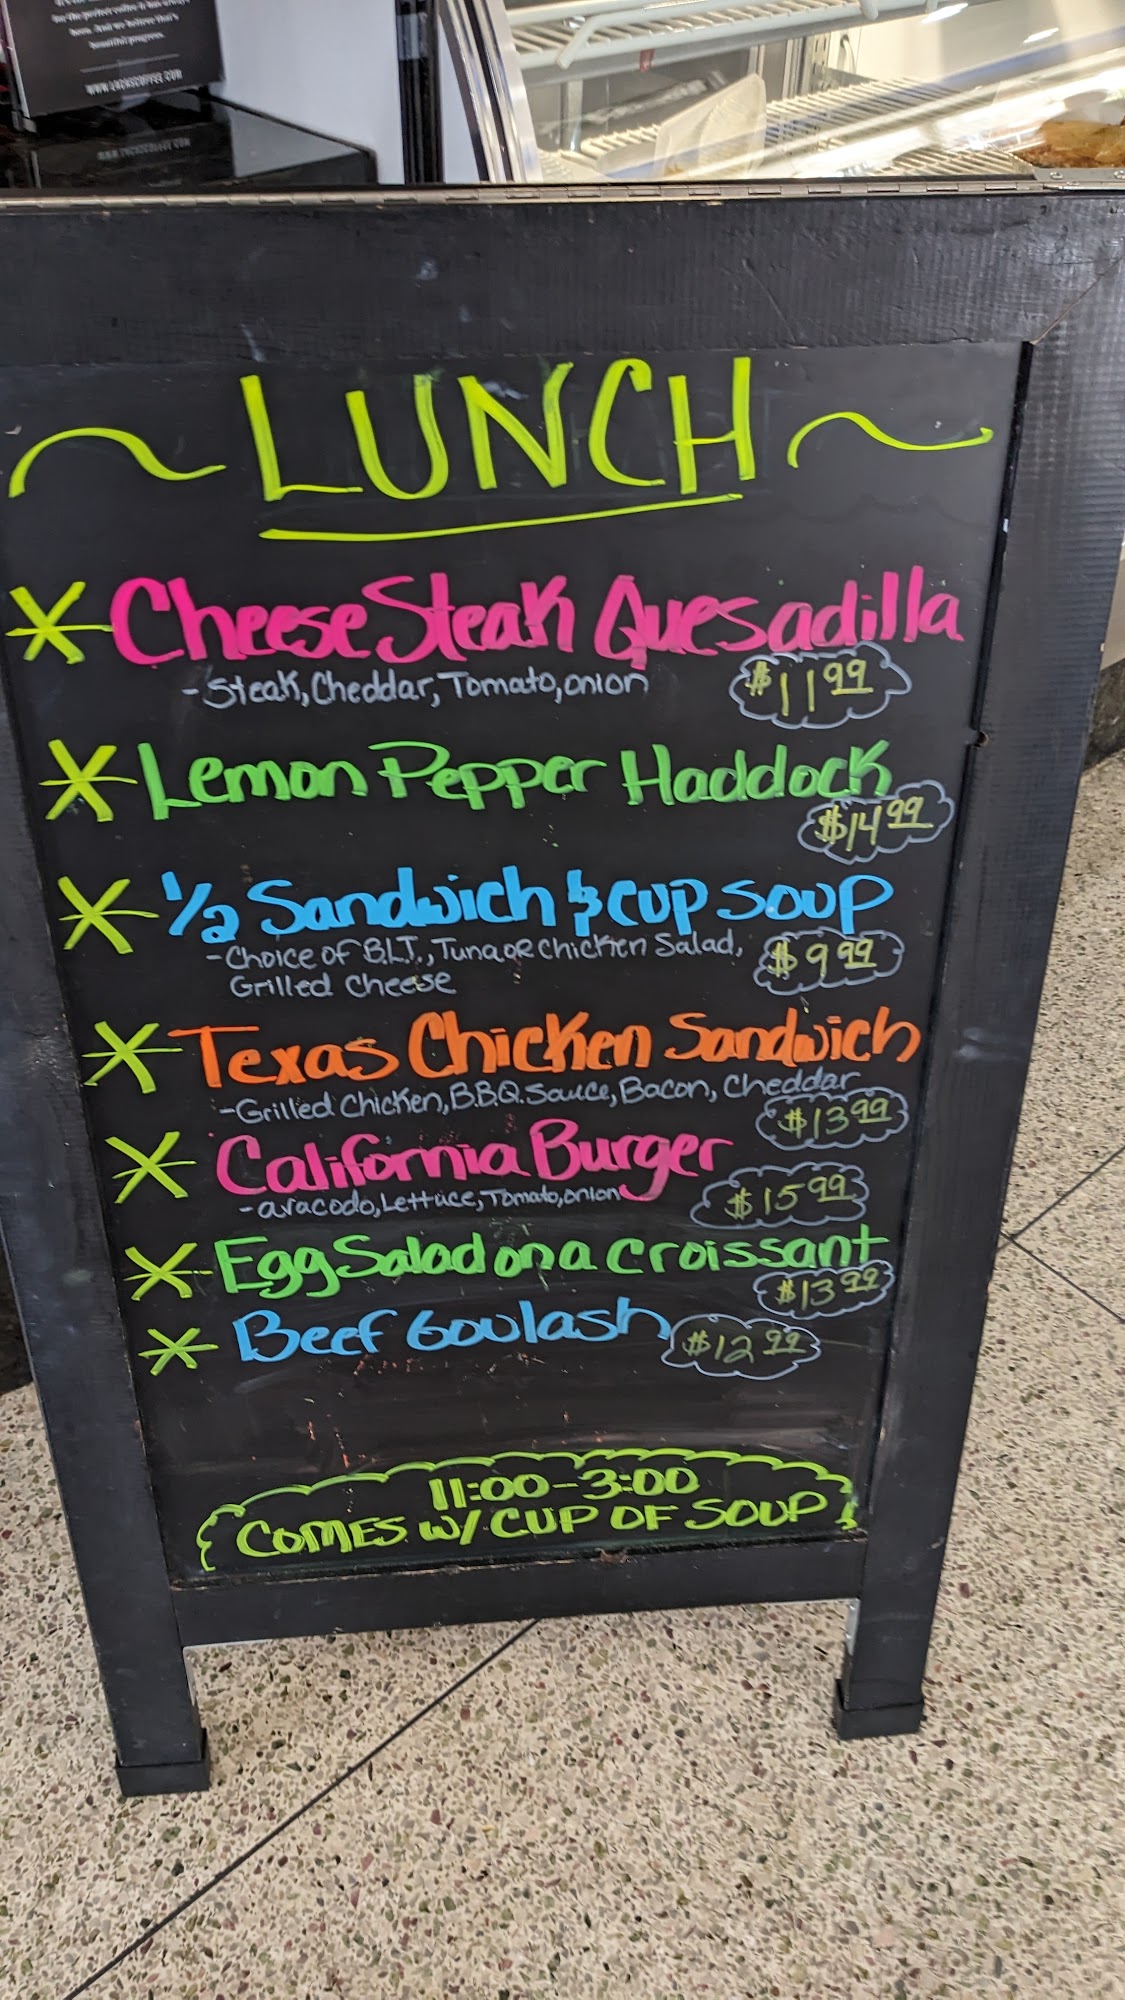 for the perfect coffee
been. And we believe that's
beautiful progress.
WWW.LACASCOFFEE.COM
WWW.LACASCOFFEE.COM
~LUNCH~
* Cheese Steak Quesadilla
-Steak, Cheddar, Tomato, onion $11.99
* Lemon Pepper Haddock
$14.99
* 1/2 Sandwich & cup soup
-Choice of B.L.T., Tuna or Chicken Salad,
Grilled Cheese $9.99
* Texas Chicken Sandwich
-Grilled Chicken, B.B.Q. Sauce, Bacon, Cheddar
$13.99
* California Burger
-avacodo, Lettuce, Tomato, onion $15.99
* Egg Salad on a croissant
$13.99
* Beef Goulash $12.99
11:00-3:00
COMES W/ CUP OF SOUP